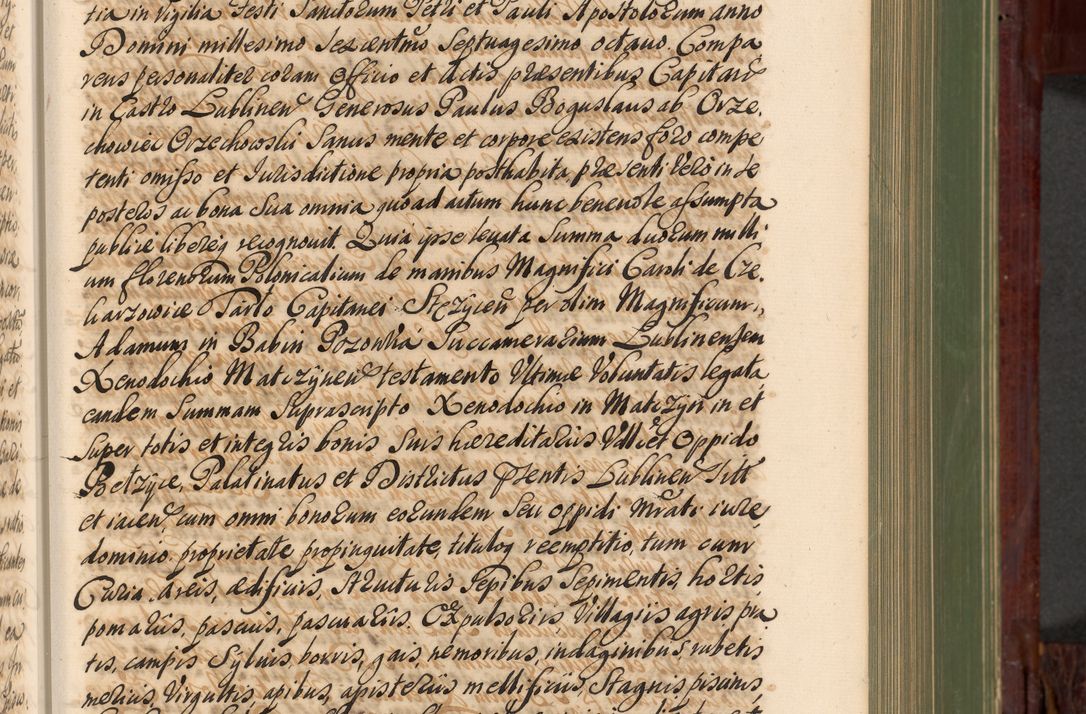 tia in vigilia Festi Sanctorum Petri et Pauli Apostolorum anno
Domini millesimo sexcentmo septuagesimo octauo. Compa,
rens personaliter coram officio et Actis præsentibus Capitan
in Castro Lublinen Generosus Paulus Boguslaus ab Orze,
chowiec Orzechowski sanus mente et corpore existens foro compe
tenti omisso et Iurisdictione propria posthabita, præsenti vero in se
posteros ac bona sua omnia quoad actum hunc benevole assumpta
publice libereq recognouit. Quia ipse leuata summa duorum milli
um florenorum Polonicalium de manibus Magnifici Caroli de Cze,
karzowice Tarło Capitanei Stezycen per olim Magnificum,
Adamum in Babin Pozonka Succamerarium Lublinensem
Xenodochio Matczynen testamento Ultimæ Voluntatis legata,
eandem summam suprascripto Xenodochio in Matczyn in et
super totis et integris bonis suis hæreditariis Villæ et Oppido
Betzyce, Palatinatus et Districtus psentis Lublinen Sitt
et iacen, cum omni bonorum eorundem seu oppidi mrati iure,
dominio, proprietate, propinquitate, tituloq reemptitio, tum cum
Curia, areis, ædificiis, structuris sepibus sepimentis, hortis,
pomariis, pascuis, pascuariis. Expulsoriis, Villagiis agris pra
tis, campis sylvis, borris, gais, nemoribus, indaginibus, rubetis
mericis, Virgultis, apibus, apisteriis mellificiis, stagnis, piscinis,